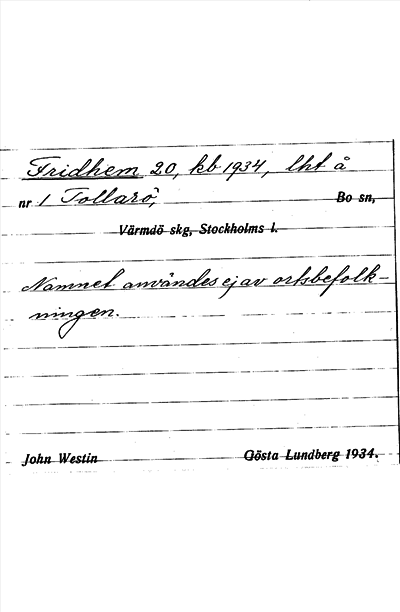 Fridhem 20, kb 1934, lht å
nr 1 Tollarö, Bo sn,
Värmdö skg, Stockholms l.
Namnet användes ej av ortsbefolk-
ningen.
John Westin Gösta Lundberg 1934.